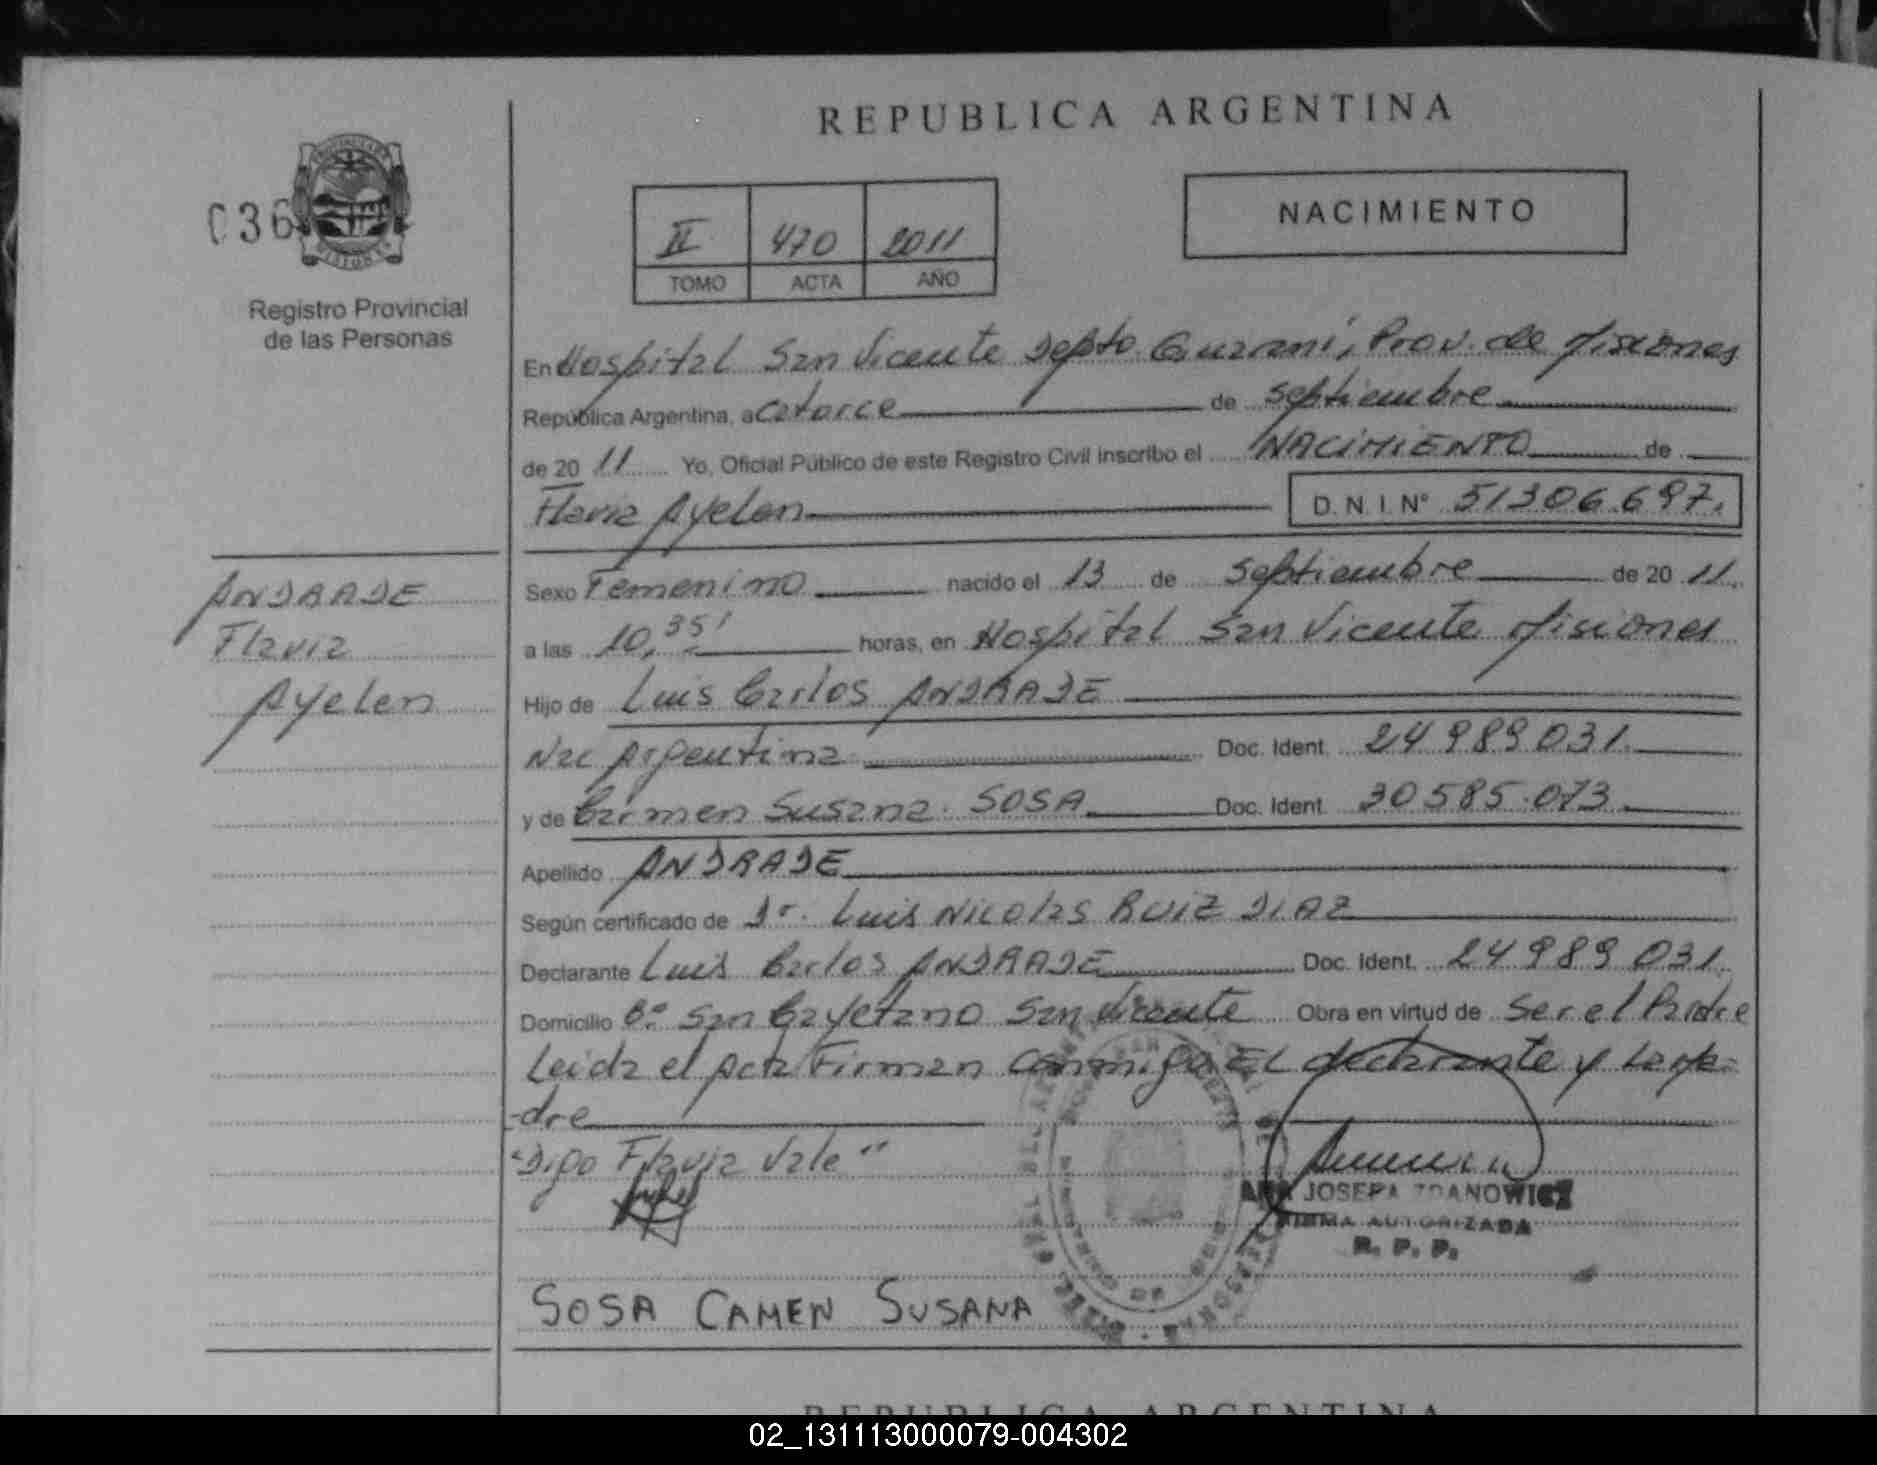 REPUBLICA ARGENTINA
036
Registro Provincial
de las Personas
II 470 2011
TOMO ACTA AÑO
NACIMIENTO
En Hospital San Vicente Depto Guarani, Prov. de Misiones
República Argentina, a Catorce de Septiembre
de 20 11 Yo, Oficial Público de este Registro Civil inscribo el NACIMIENTO de
Flavia Ayelen D.N.I. Nº 51306.697.
ANDRADE
Flavia
Ayelen
Sexo Femenino nacido el 13 de Septiembre de 20 11.
a las 10,35' horas, en Hospital San Vicente Misiones
Hijo de Luis Carlos ANDRADE
Nac Argentina Doc. Ident. 24989031.
y de Carmen Susana SOSA Doc. Ident. 30585.073
Apellido ANDRADE
Según certificado de Dr. Luis Nicolas RUIZ DIAZ
Declarante Luis Carlos ANDRADE Doc. Ident. 24989031.
Domicilio Bº San Cayetano San Vicente Obra en virtud de Ser el Padre
Leida el Acta Firman conmigo EL declarante y la
-dre
"Digo Flavia Vale"
ANA JOSEFA ZDANOWICZ
FIRMA AUTORIZADA
R. P. P.
SOSA CAMEN SUSANA
REPUBLICA ARGENTINA
02_131113000079-004302